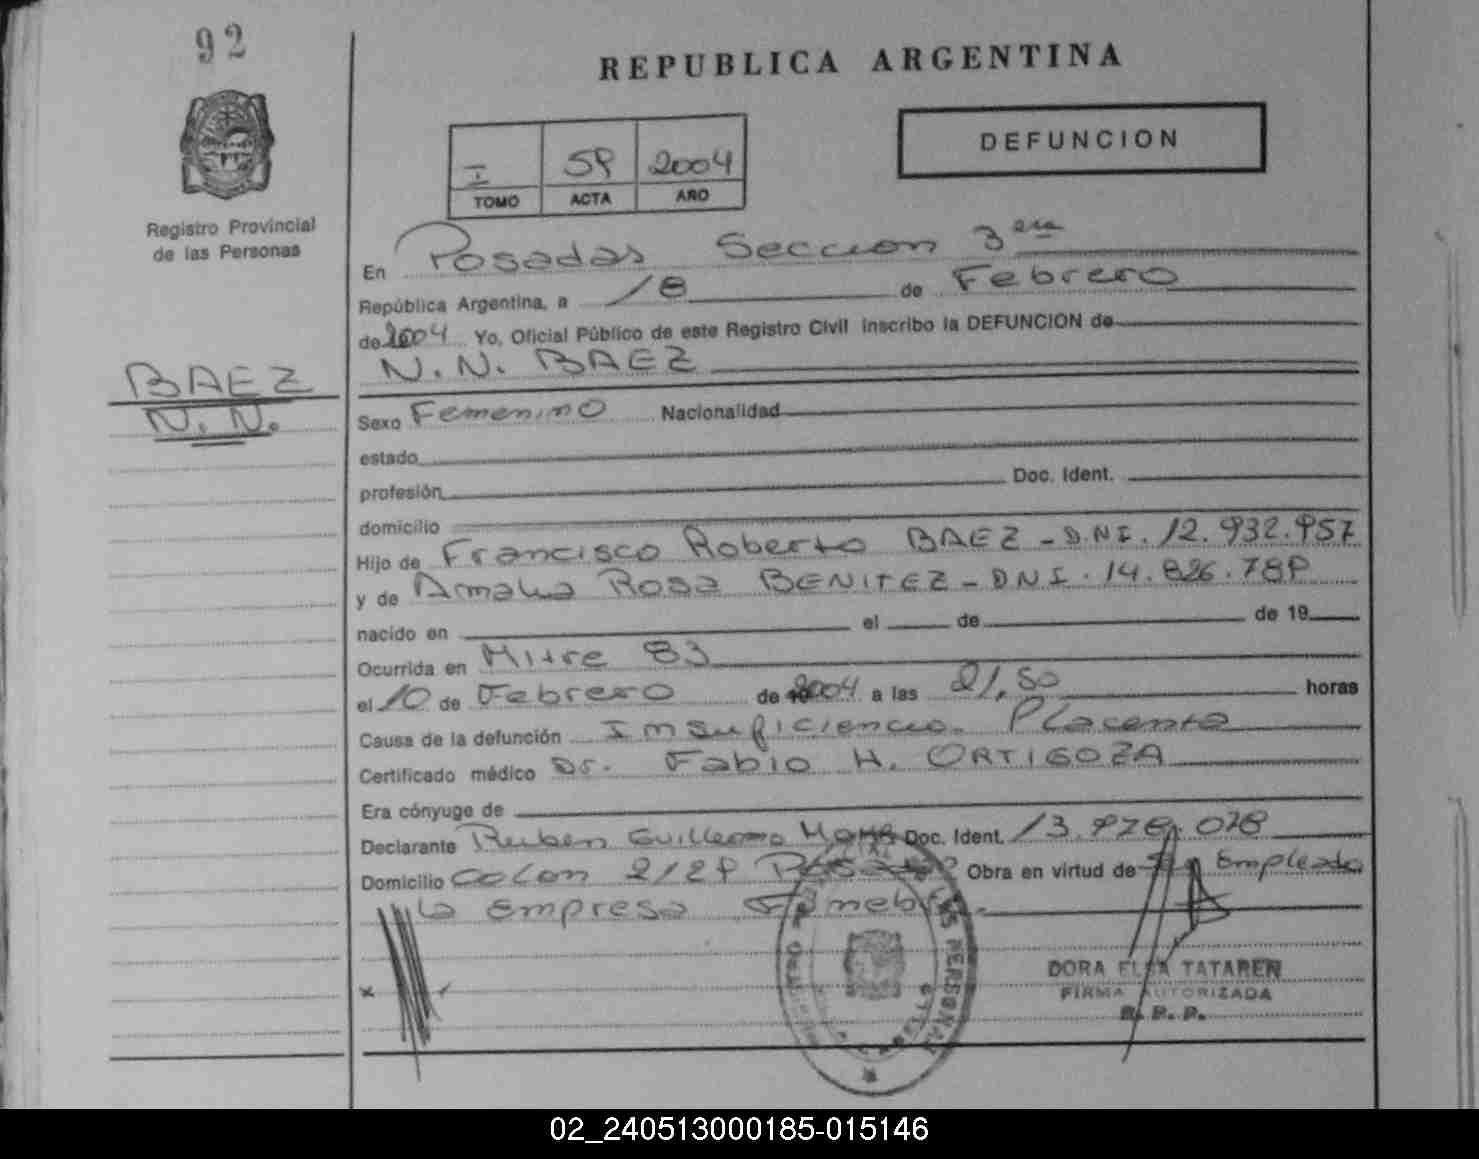 92
REPUBLICA ARGENTINA
DEFUNCION
I 59 2004
TOMO ACTA AÑO
Registro Provincial
de las Personas
En Posadas Seccion 3era
República Argentina, a 18 de Febrero
de 2004 Yo, Oficial Público de este Registro Civil inscribo la DEFUNCION de
N.N. BAEZ
BAEZ
N.N.
Sexo Femenino Nacionalidad
estado
profesión Doc. Ident.
domicilio
Hijo de Francisco Roberto BAEZ - DNI. 12.932.957
y de Amalia Rosa BENITEZ - DNI. 14.826.789
nacido en el de de 19
Ocurrida en Mitre 83
el 10 de Febrero de 2004 a las 21,50 horas
Causa de la defunción Insuficiencia Placenta
Certificado médico Dr. Fabio H. ORTIGOZA
Era cónyuge de
Declarante Ruben Guillermo Doc. Ident. 13.
Domicilio Colon 2129 Posadas Obra en virtud de Empleado
la empresa Funebre
DORA ELSA TATAREN
FIRMA AUTORIZADA
R. P. P.
02_240513000185-015146